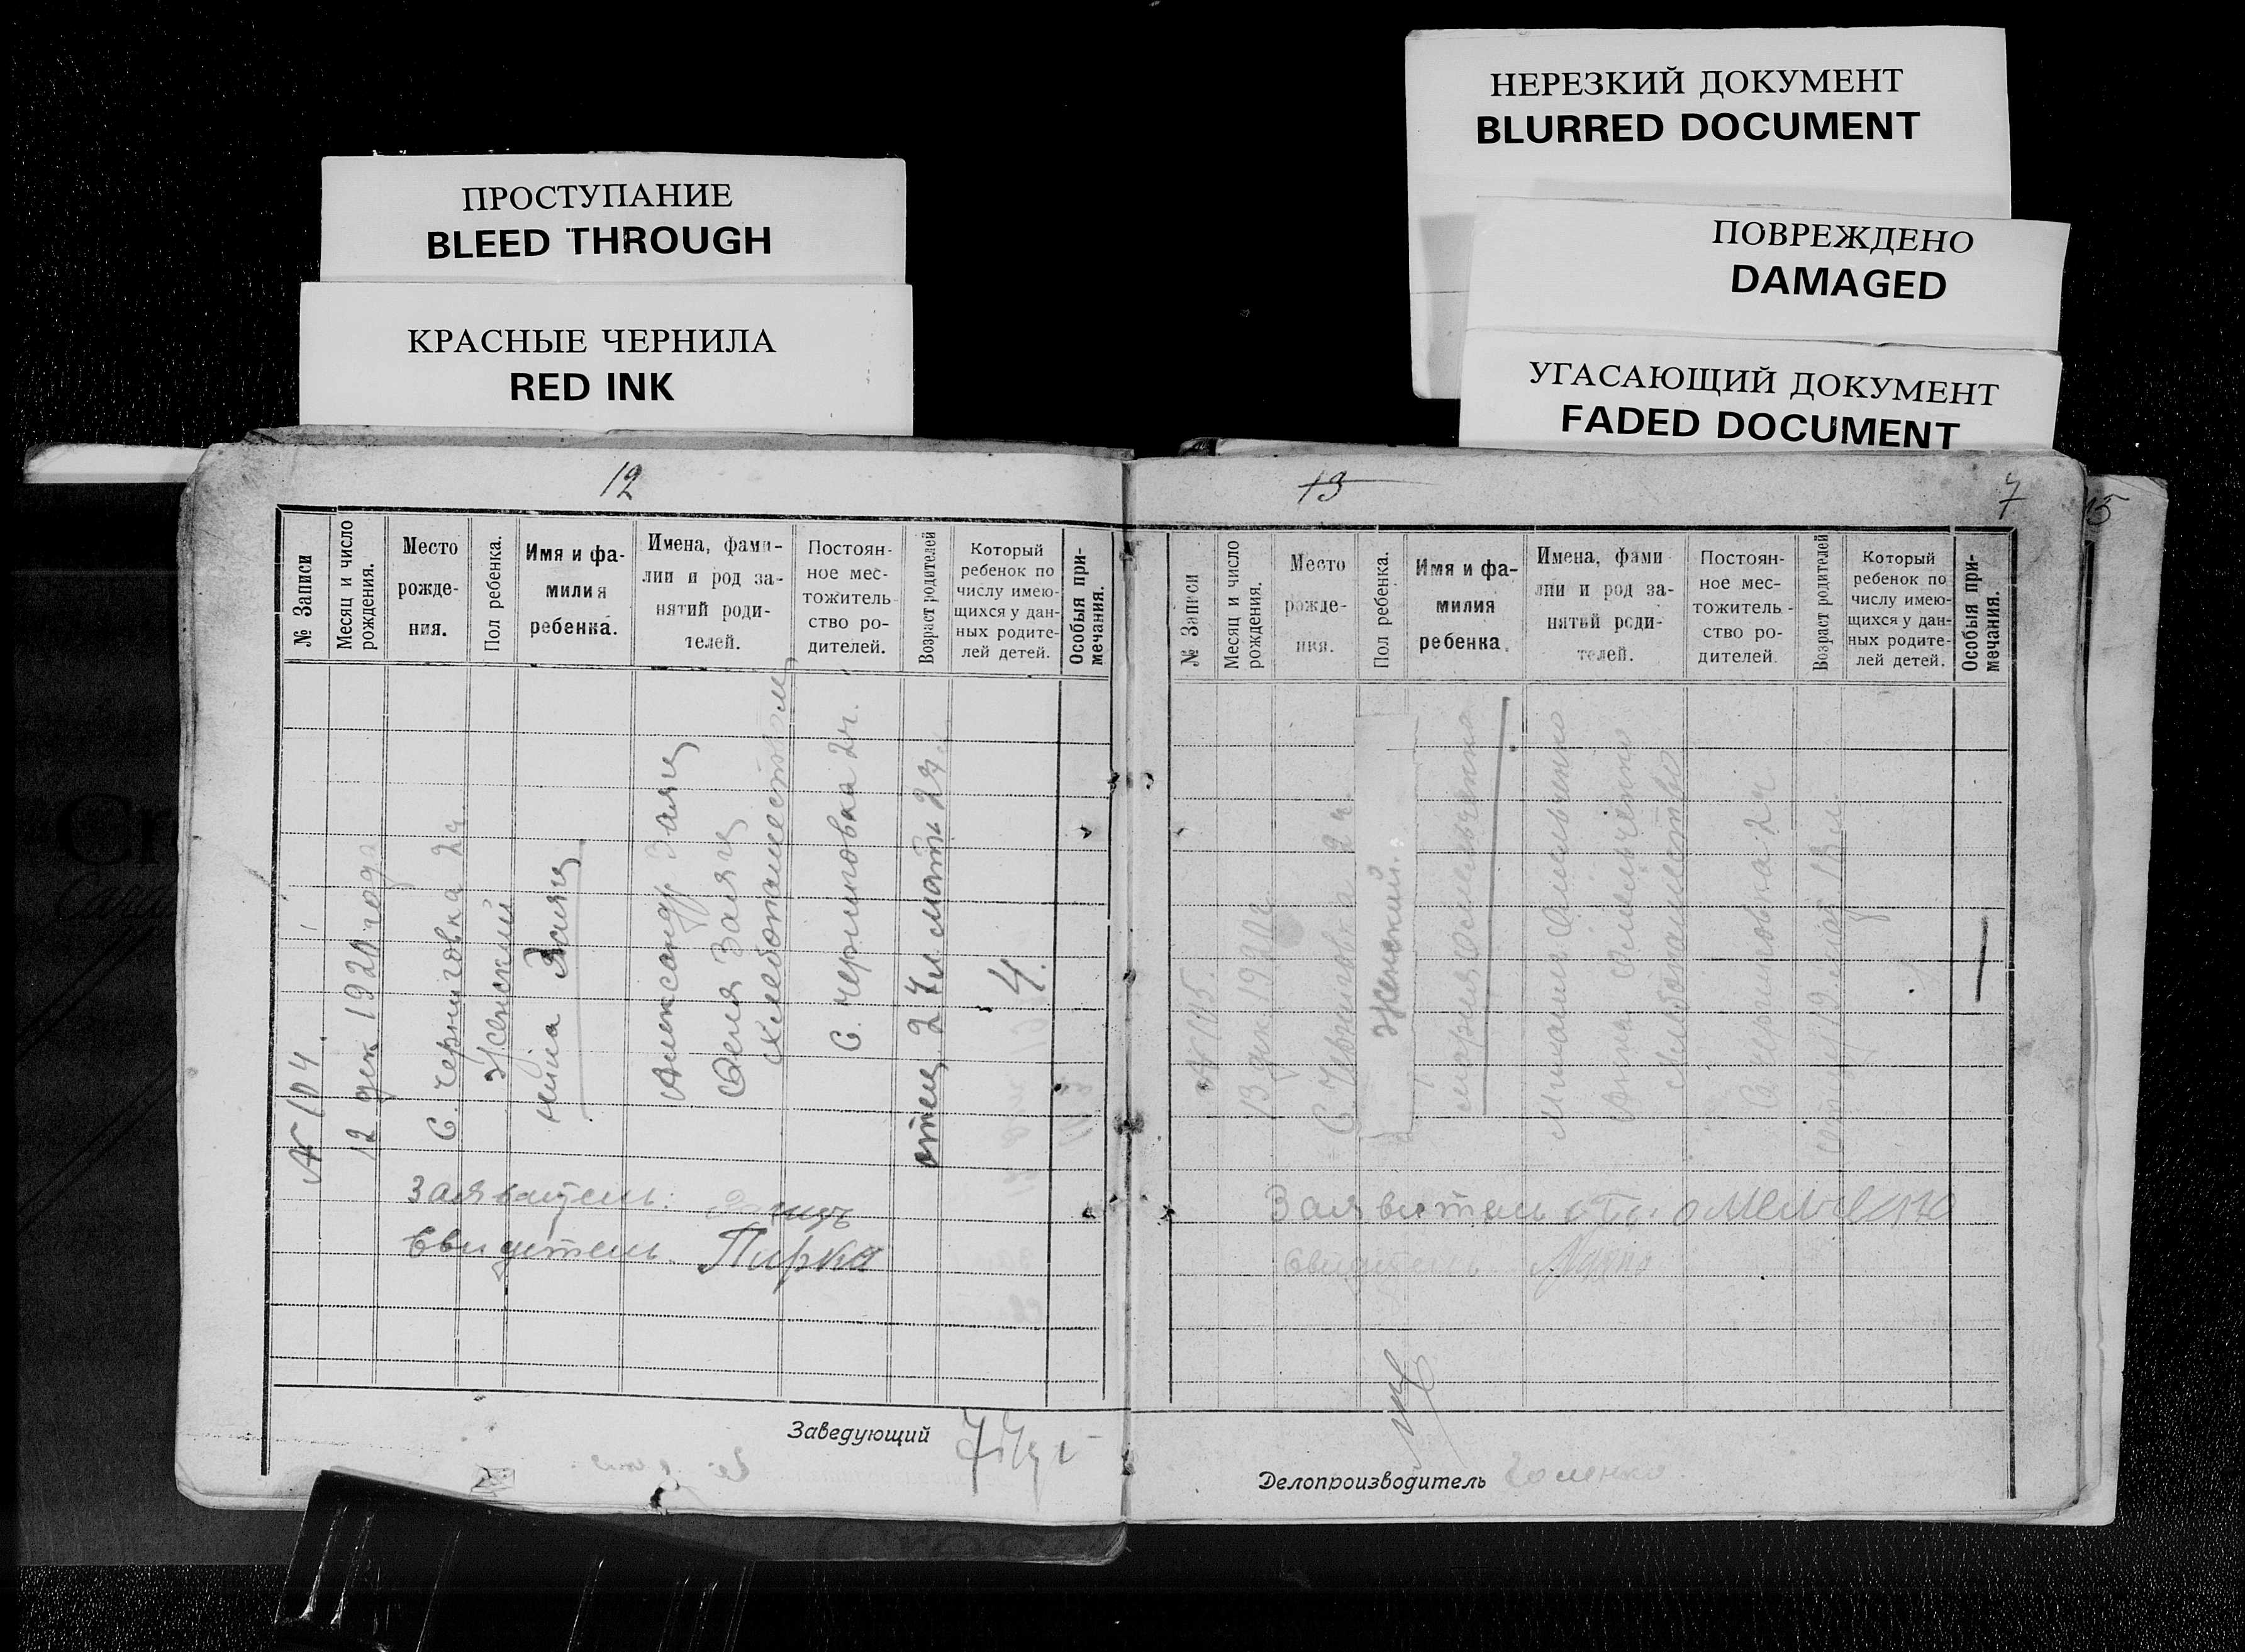 ПРОСТУПАНИЕ
BLEED THROUGH
КРАСНЫЕ ЧЕРНИЛА
RED INK
НЕРЕЗКИЙ ДОКУМЕНТ
BLURRED DOCUMENT
ПОВРЕЖДЕНО
DAMAGED
УГАСАЮЩИЙ ДОКУМЕНТ
FADED DOCUMENT
12
№ Записи
Месяц и число
рождения.
Место
рожде-
ния.
Пол ребенка.
Имя и фа-
милия
ребенка.
Имена, фами-
лии и род за-
нятий роди-
телей.
Постоян-
ное мес-
тожитель-
ство ро-
дителей.
Возраст родителей
Который
ребенок по
числу имею-
щихся у дан-
ных родите-
лей детей.
Особыя при-
мечания.
№ 104.
12 дек 1920 года
С. Черниговка 2ч.
Женский
Нина Заяц
Александр Заяц
Заяц
Хлебопашеством
С. Черниговка 2ч.
отец 27 л мать 27
4.
Заявитель:
Свидетель Пирка
Заведующий
13
7
15
№ Записи
Месяц и число
рождения.
Место
рожде-
ния.
Пол ребенка.
Имя и фа-
милия
ребенка.
Имена, фами
лии и род за-
нятий роди-
телей.
Постоян-
ное мес-
тожитель-
ство ро-
дителей.
Возраст родителей
Который
ребенок по
числу имею-
щихся у дан-
ных родите-
лей детей.
Особыя при-
мечания.
13 дек. 1920
С. Черниговка 2 ч.
Женский.
Мария Омельченко
Михаил Омельченко
Анна Омельченко
Хлебопашество
С. Черниговка 2ч
отец 19 мат 18 л.
Заявитель
Свидетель
Делопроизводитель